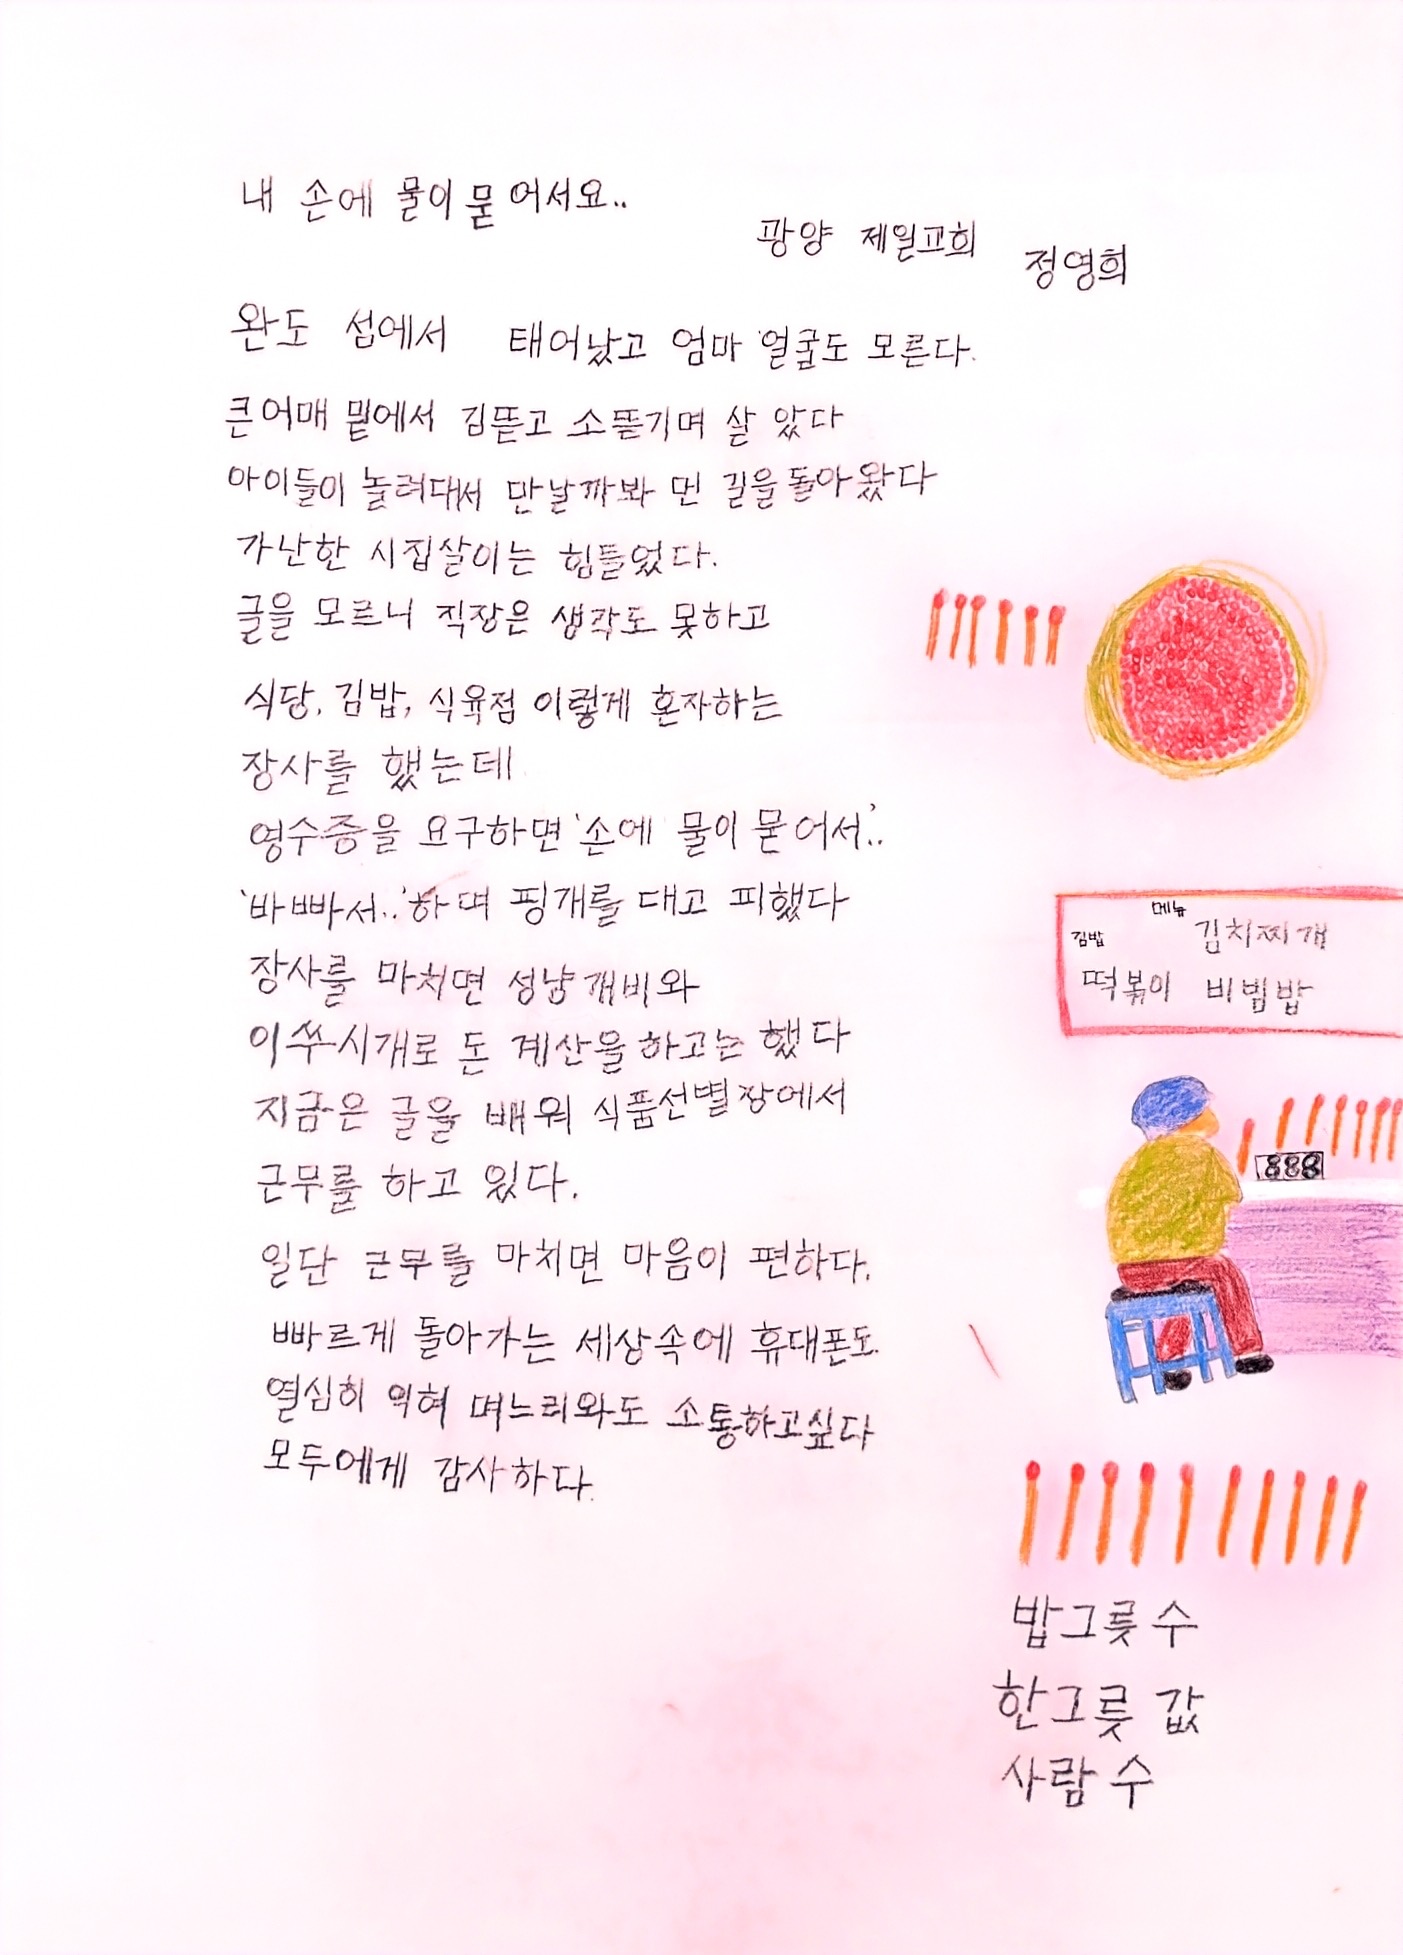 내 손에 물이 묻어서요..
광양 제일교회 정영희
완도 섬에서 태어났고 엄마 얼굴도 모른다.
큰어매 밑에서 김뜯고 소뜯기며 살았다
아이들이 놀려대서 만날까봐 먼 길을 돌아왔다
가난한 시집살이는 힘들었다.
글을 모르니 직장은 생각도 못하고
식당, 김밥, 식육점 이렇게 혼자하는
장사를 했는데
영수증을 요구하면 '손에 물이 묻어서'..
'바빠서..'하며 핑개를 대고 피했다
장사를 마치면 성냥개비와
이쑤시개로 돈 계산을 하고는 했다
지금은 글을 배워 식품선별장에서
근무를 하고 있다.
일단 근무를 마치면 마음이 편하다.
빠르게 돌아가는 세상속에 휴대폰도
열심히 익혀 며느리와도 소통하고싶다
모두에게 감사하다.
메뉴
김밥 김치찌개
떡볶이 비빔밥
888
밥그릇 수
한그릇 값
사람 수